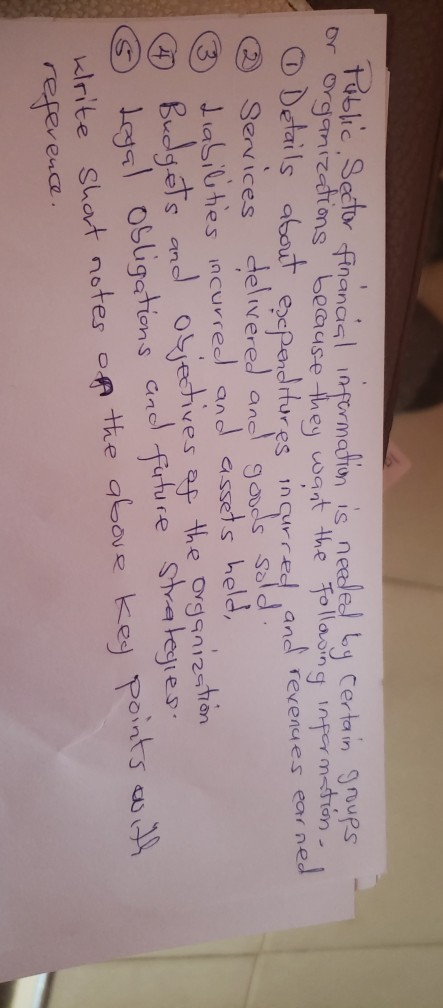 Public Sector financial information is needed by certain groups
or organizations because they want the following information.
① Details about expenditures incurred and revenues earned
② Services delivered and goods sold.
③ Liabilities incurred and assets held,
④ Budgets and objectives of the organization
⑤ Legal Obligations and future strategies.
Write short notes on the above key points with
reference.